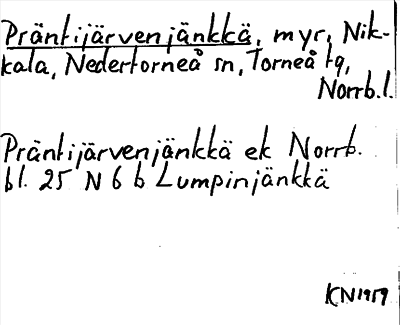 Präntijärvenjänkkä, myr, Nik-
kala, Nedertorneå sn, Torneå tg,
Norrb.l.
Präntijärvenjänkkä ek Norrb.
bl. 25 N 6 b Lumpinjänkkä
KN 1959